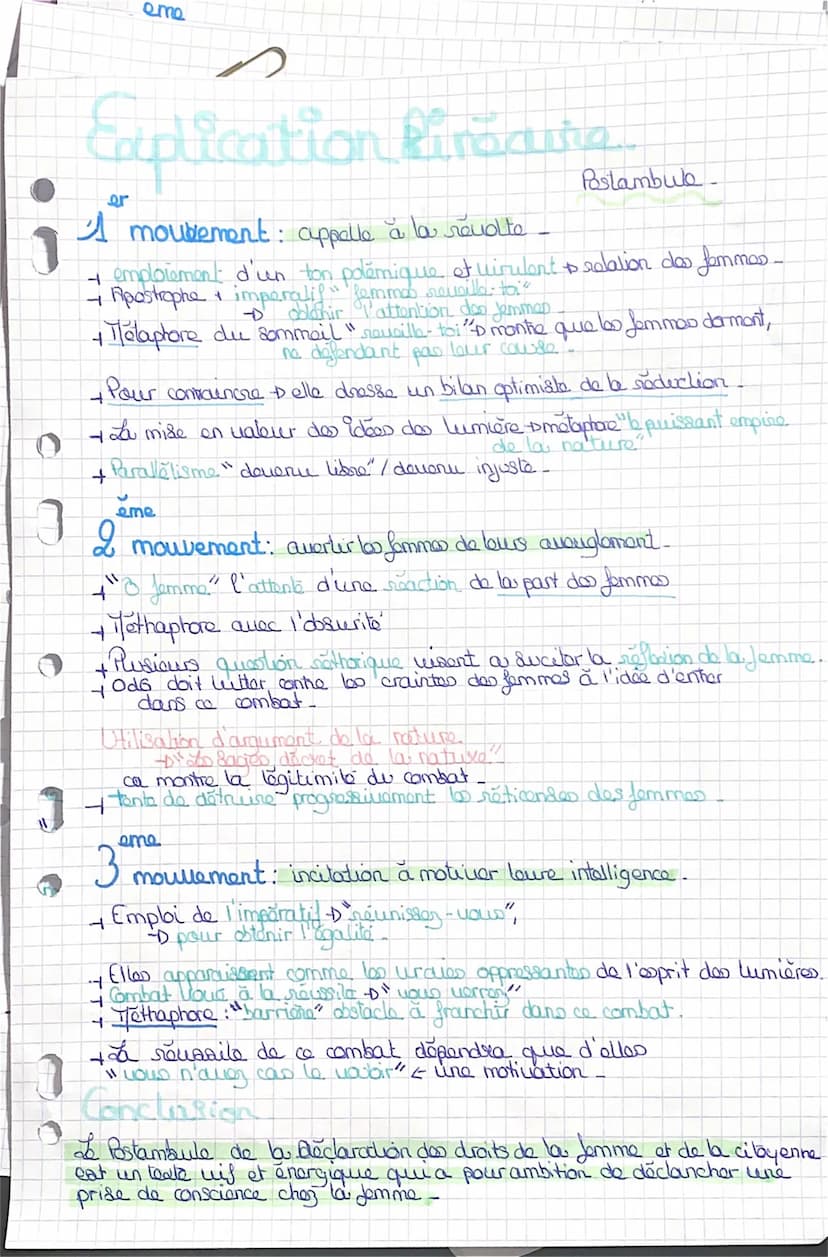 eme
Explication linéaire
Postambule -
1er mouvement : appelle à la révolte -
→ emploiement d'un ton polémique et virulent → relation des femmes -
→ Apostrophe + imperatif " femmes reveille-toi"
→ obtenir l'attention des femmes
→ Métaphore du sommeil " reveille-toi" → montre que les femmes dorment,
ne défendant pas leur cause -
→ Pour convaincre → elle dresse un bilan optimiste de la réduction -
→ La mise en valeur des idées des lumière → métaphore "le puissant empire
de la nature"
→ Parallélisme " devenu libre" / devenu injuste -
2ème mouvement : avertir les femmes de leurs aveuglement -
→ "ô femme" l'attente d'une réaction de la part des femmes
→ Méthaphore avec l'obsurité
→ Plusieurs question réthorique visent a suciter la réflexion de la femme.
→ OdG doit lutter contre les craintes des femmes à l'idée d'entrer
dans ce combat -
Utilisation d'argument de la nature
→ " Les sages décret de la nature"
ca montre la légitimité du combat -
→ tente de détruire progressivement les réticendes des femmes -
3eme mouvement : incitation à motiver leure intelligence .
→ Emploi de l'impératif → "réunissez-vous",
→ pour obtenir l'égalité -
→ Elles apparaissent comme les vraies oppressantes de l'esprit des lumières.
→ Combat voué à la réussite → " vous verrez"
→ Méthaphore : "barrière" obstacle à franchir dans ce combat .
→ La réussite de ce combat dépendra que d'elles
"vous n'avez cas le valoir" ← une motivation -
Conclusion
Le Postambule de la Déclaration des droits de la femme et de la citoyenne
est un texte vif et énergique qui a pour ambition de déclancher une
prise de conscience chez la femme -